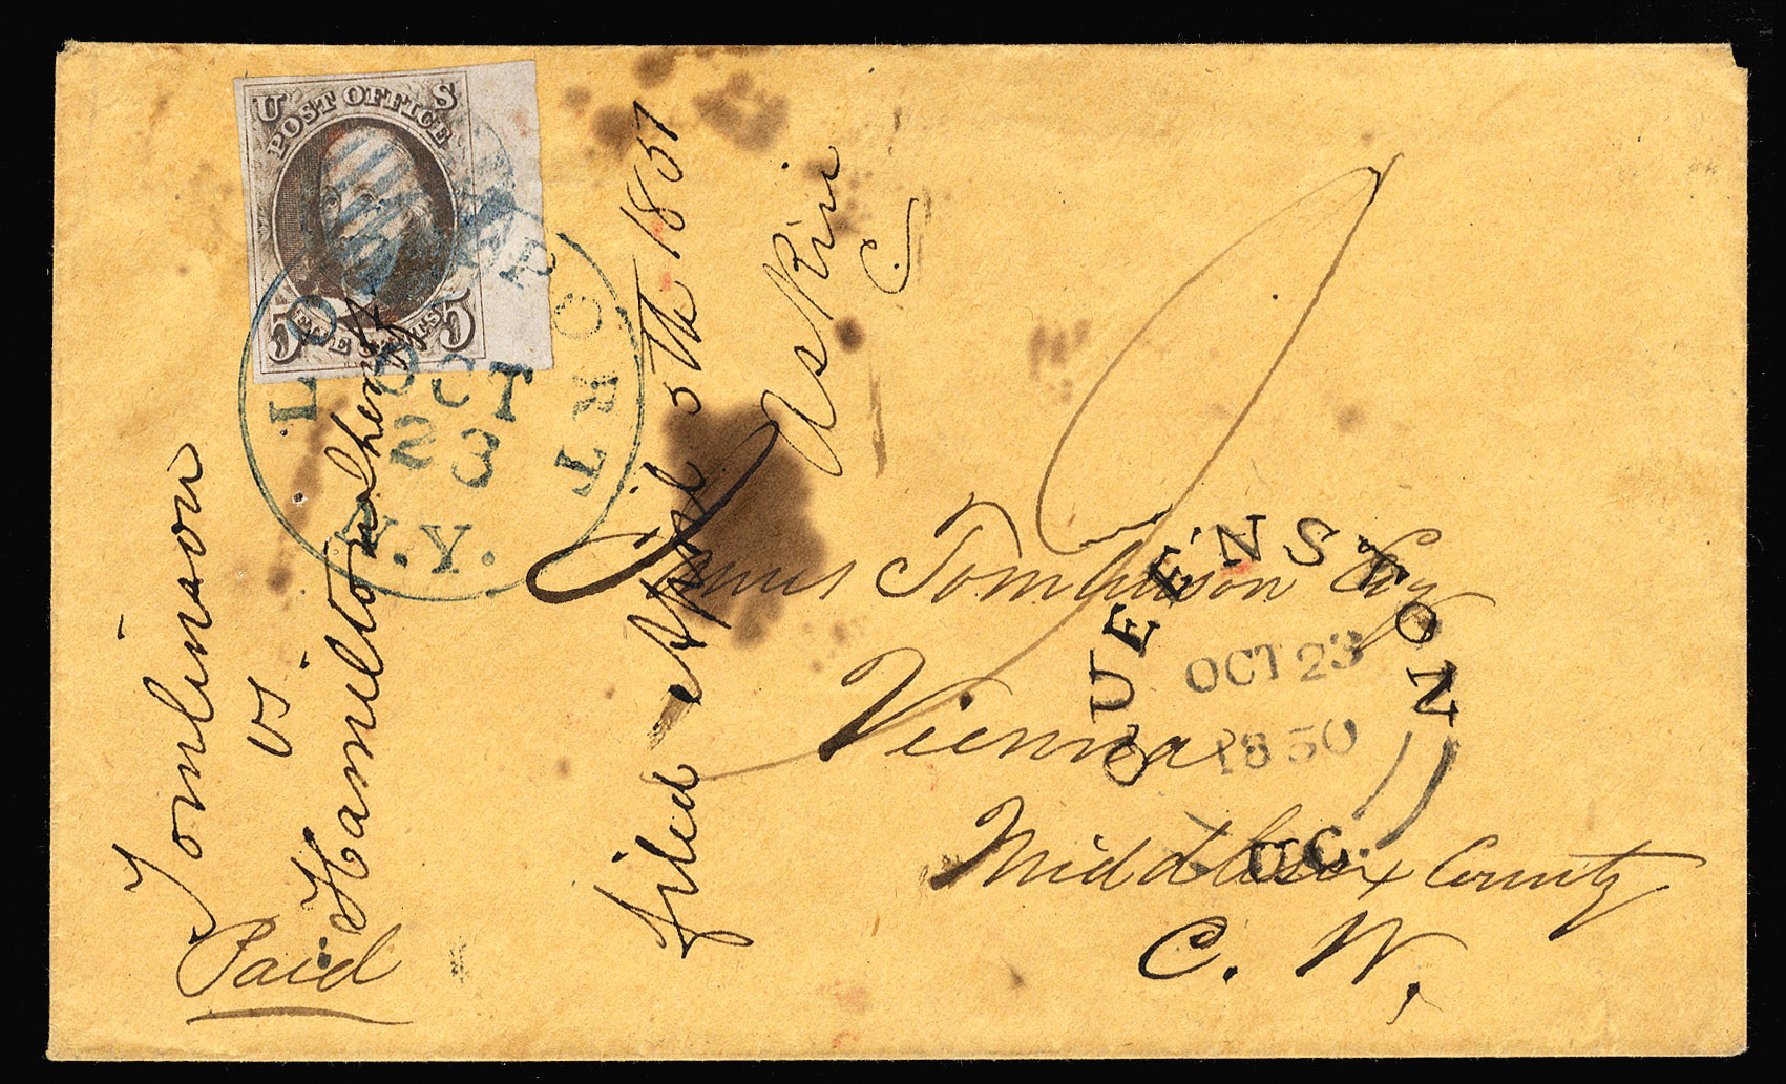 U S
POST OFFICE
FIVE CENTS
5 5
LOCKPORT
OCT
23
N.Y.
James Tomlinson Esq
Vienna
Middlesex County
C. W.
QUEENSTON
OCT 23
1850
U.C.
Paid
Tomlinson
vs
Hamilton
filed April 5th 1851
Askin
C